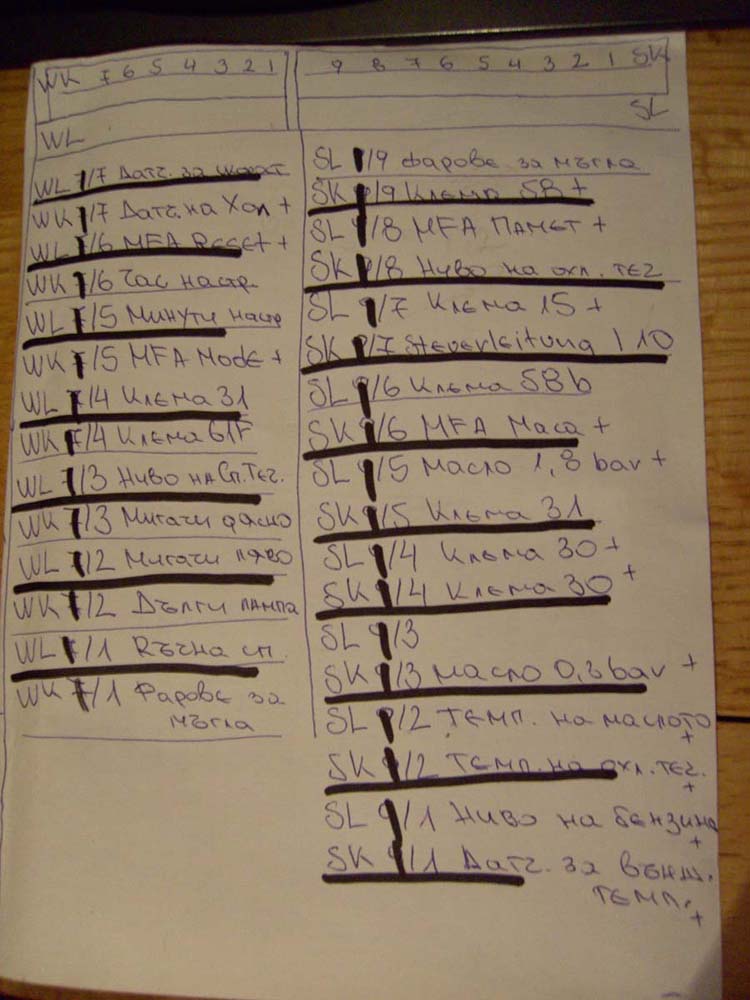 WK 7 6 5 4 3 2 1
WL
9 8 7 6 5 4 3 2 1 SK
SL
WL 7/7 Датч. за скорост
WK 7/7 Датч. на Хол +
WL 7/6 MFA Reset +
WK 7/6 Час настр.
WL 7/5 Минути настр
WK 7/5 MFA Mode +
WL 7/4 Клема 31
WK 7/4 Клема 61F
WL 7/3 Ниво на Сп. Теч.
WK 7/3 Мигачи дясно
WL 7/2 Мигачи ляво
WK 7/2 Дълги лампа
WL 7/1 Ръчна сп.
WK 7/1 Фарове за
мъгла
SL 9/9 фарове за мъгла
SK 9/9 Клема 58 +
SL 9/8 MFA Памет +
SK 9/8 Ниво на охл. теч
SL 9/7 Клема 15 +
SK 9/7 Steuerleitung 1 10
SL 9/6 Клема 58b
SK 9/6 MFA Маса +
SL 9/5 Масло 1,8 bar +
SK 9/5 Клема 31
SL 9/4 Клема 30 +
SK 9/4 Клема 30 +
SL 9/3
SK 9/3 масло 0,3 bar +
SL 9/2 Темп. на маслото
+
SK 9/2 Темп. на охл. теч.
+
SL 9/1 Ниво на бензина
+
SK 9/1 Датч. за външ.
темп.
+